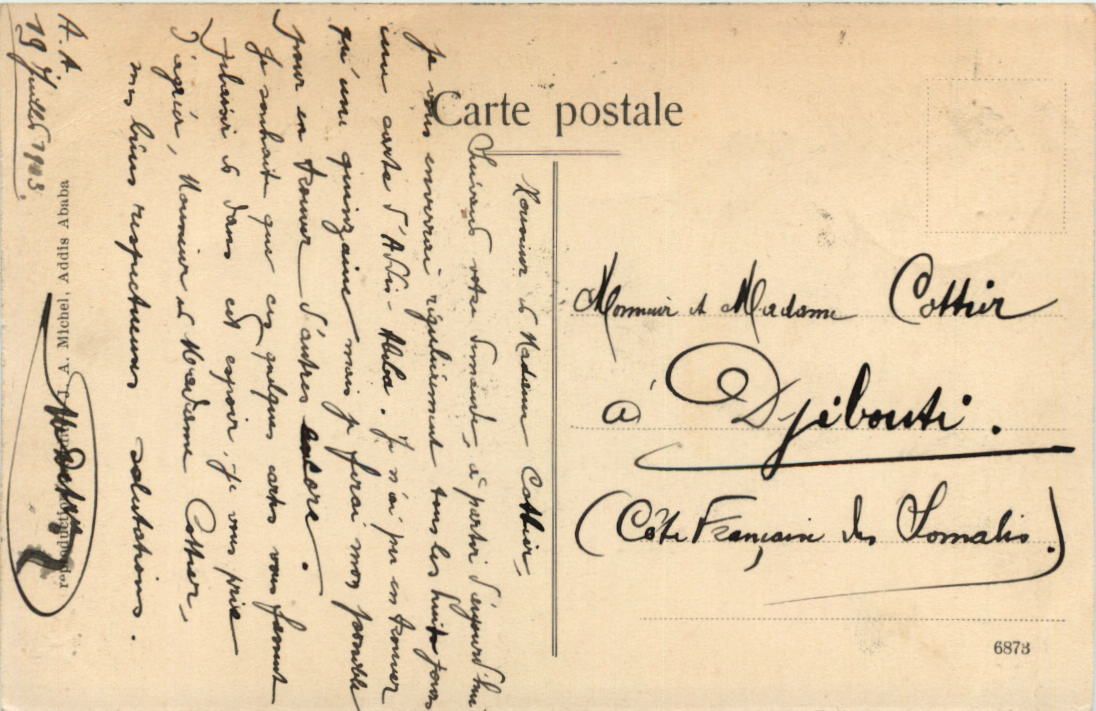 Carte postale
Monsieur et Madame Cottier,
Suivant votre demande, à partir d'aujourd'hui
je vous enverrai régulièrement tous les huit jours
une carte d'Addis-Ababa. Je n'ai pu en trouver
qu'une quinzaine mais je ferai mon possible
pour en trouver d'autres encore.
Je souhaite que ces quelques cartes vous feront
plaisir et dans cet espoir, je vous prie
d'agréer, Monsieur et Madame Cottier,
mes biens respectueuses salutations.
A. A
19 Juillet 1903
A. Michel, Addis Ababa
Monsieur et Madame Cottier
à Djibouti.
(Côte Française des Somalis.)
6873